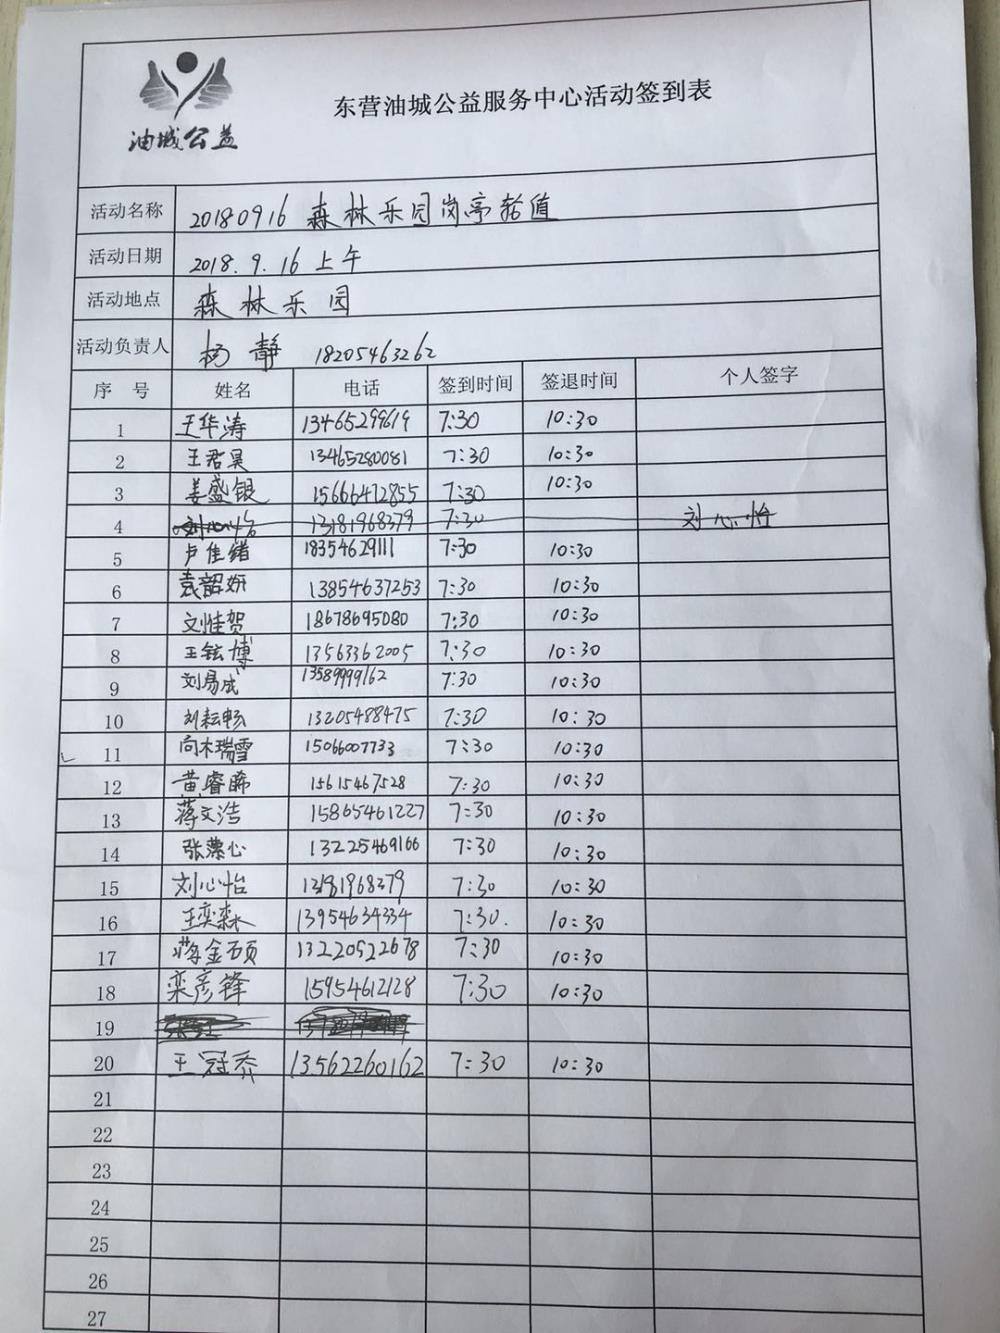 油城公益
东营油城公益服务中心活动签到表
活动名称 20180916 森林乐园岗亭轮值
活动日期 2018.9.16上午
活动地点 森林乐园
活动负责人 杨静 18205463262
序号 姓名 电话 签到时间 签退时间 个人签字
1 王华涛 13465299619 7:30 10:30
2 王君昊 13465280081 7:30 10:30
3 姜盛银 15666472855 7:30 10:30
4 刘心怡 13181968379 7:30 刘心怡
5 卢佳锴 18354629111 7:30 10:30
6 袁韶妍 13854637253 7:30 10:30
7 文佳贺 18678695080 7:30 10:30
8 王铉博 13563362005 7:30 10:30
9 刘易成 13589999162 7:30 10:30
10 刘耘畅 13205488475 7:30 10:30
11 向木瑞雪 15066007733 7:30 10:30
12 苗睿 15615467528 7:30 10:30
13 蒋文浩 15865461227 7:30 10:30
14 张蕖心 13225469166 7:30 10:30
15 刘心怡 13181968379 7:30 10:30
16 王奕森 13954634334 7:30. 10:30
17 蒋金硕 13220522678 7:30 10:30
18 栾彦锋 15954612128 7:30 10:30
19
20 王冠乔 13562260162 7:30 10:30
21
22
23
24
25
26
27